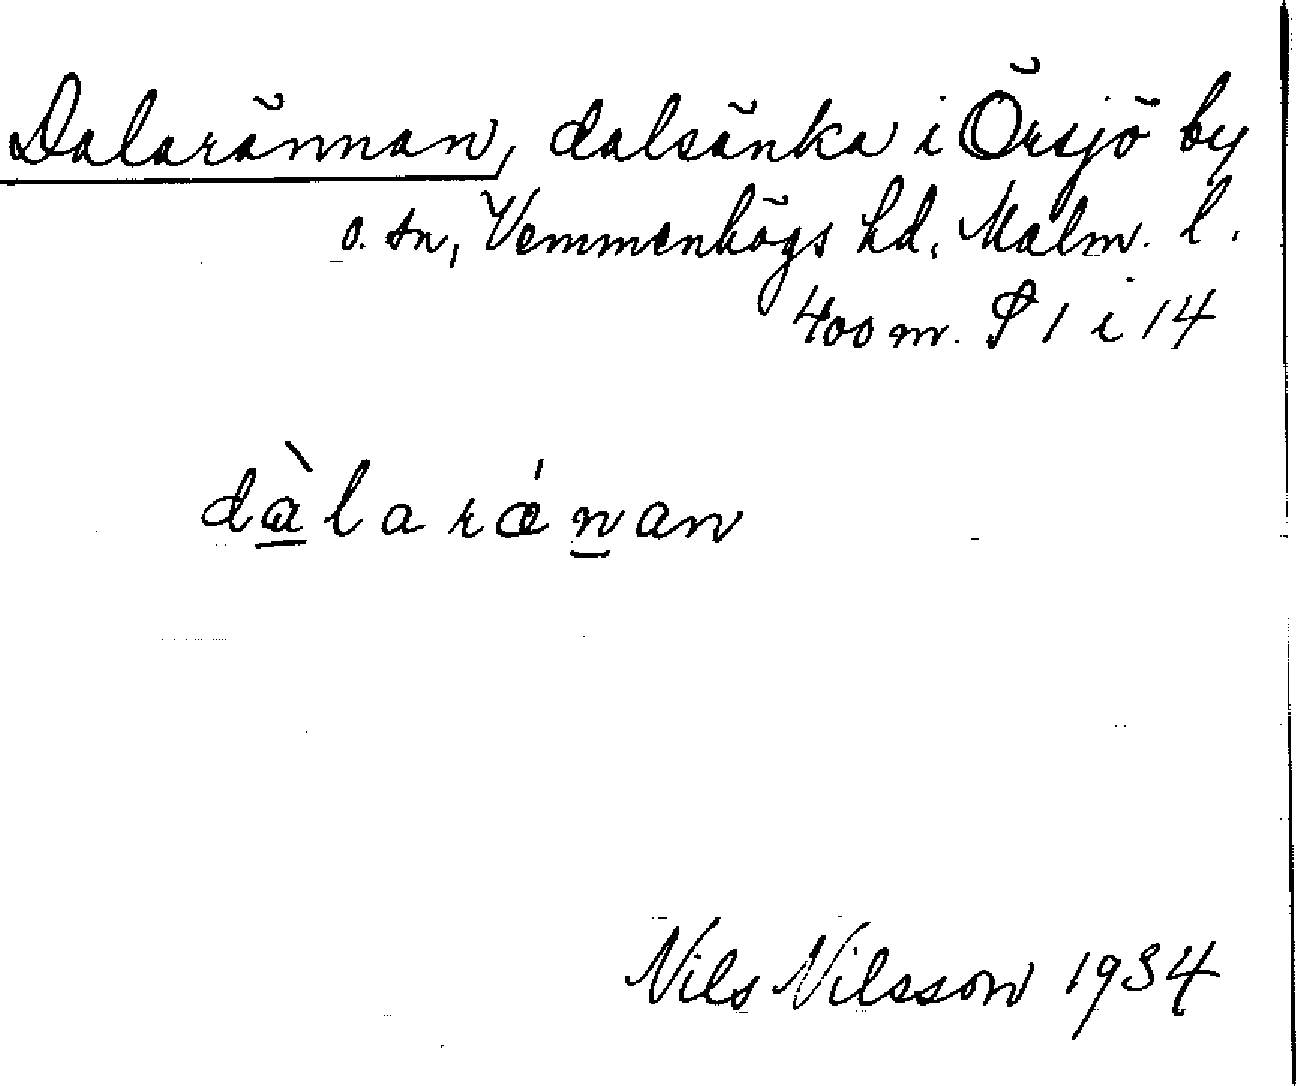 Dalarännan, dalsänka i Örsjö by
o. sn, Vemmenhögs hd, Malm. l.
400 m. S 1 i 14
dàlarǽnan
Nils Nilsson 1934